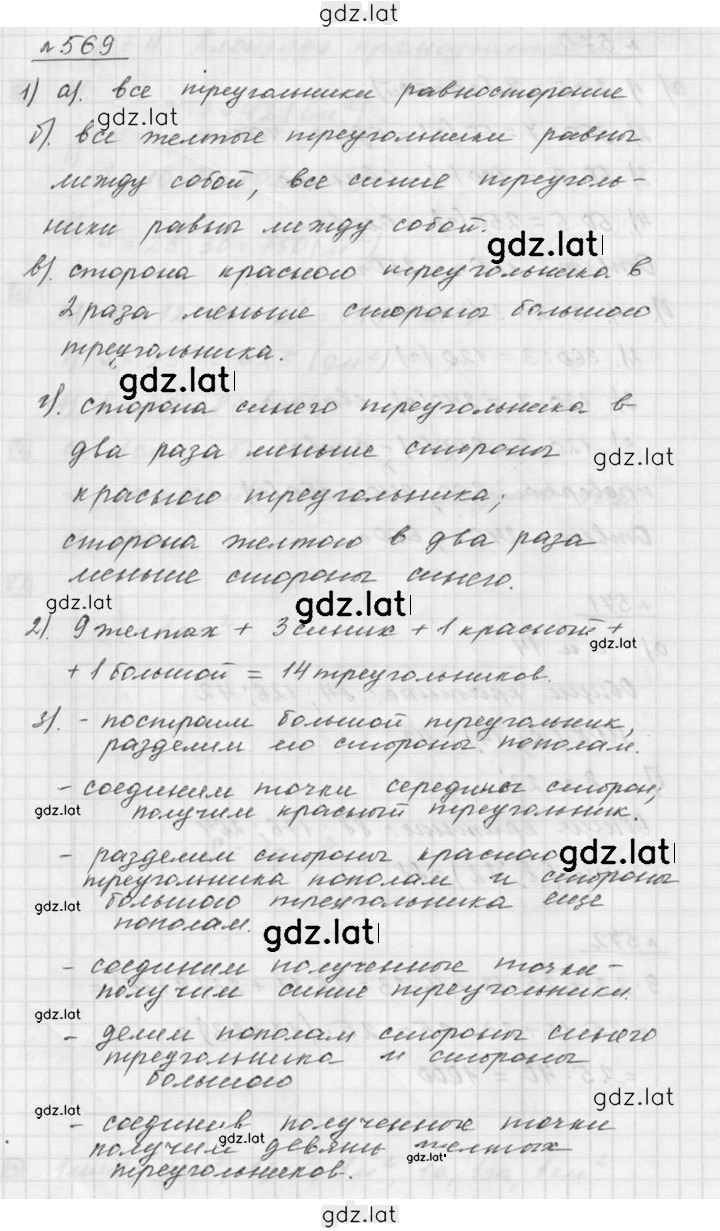 gdz.lat
№569
1) а). все треугольники равносторонние
gdz.lat
б). все желтые треугольники равны
между собой, все синие треуголь-
ники равны между собой.
gdz.lat
в). сторона красного треугольника в
2 раза меньше стороны большого
треугольника.
gdz.lat
г). сторона синего треугольника в
два раза меньше стороны
gdz.lat
красного треугольника;
сторона желтого в два раза
меньше стороны синего.
gdz.lat
gdz.lat
2). 9 желтых + 3 синих + 1 красный +
gdz.lat
+ 1 большой = 14 треугольников.
3). - построим большой треугольник,
разделим его стороны пополам.
- соединим точки середины сторон;
gdz.lat
получим красный треугольник.
- разделим стороны красного
gdz.lat
треугольника пополам и стороны
gdz.lat
большого треугольника еще
пополам.
gdz.lat
- соединим полученные точки -
получим синие треугольники.
gdz.lat
- делим пополам стороны синего
треугольника и стороны
большого
gdz.lat
gdz.lat
- соединив полученные точки
получим девять желтых
gdz.lat
gdz.lat
треугольников.
gdz.lat